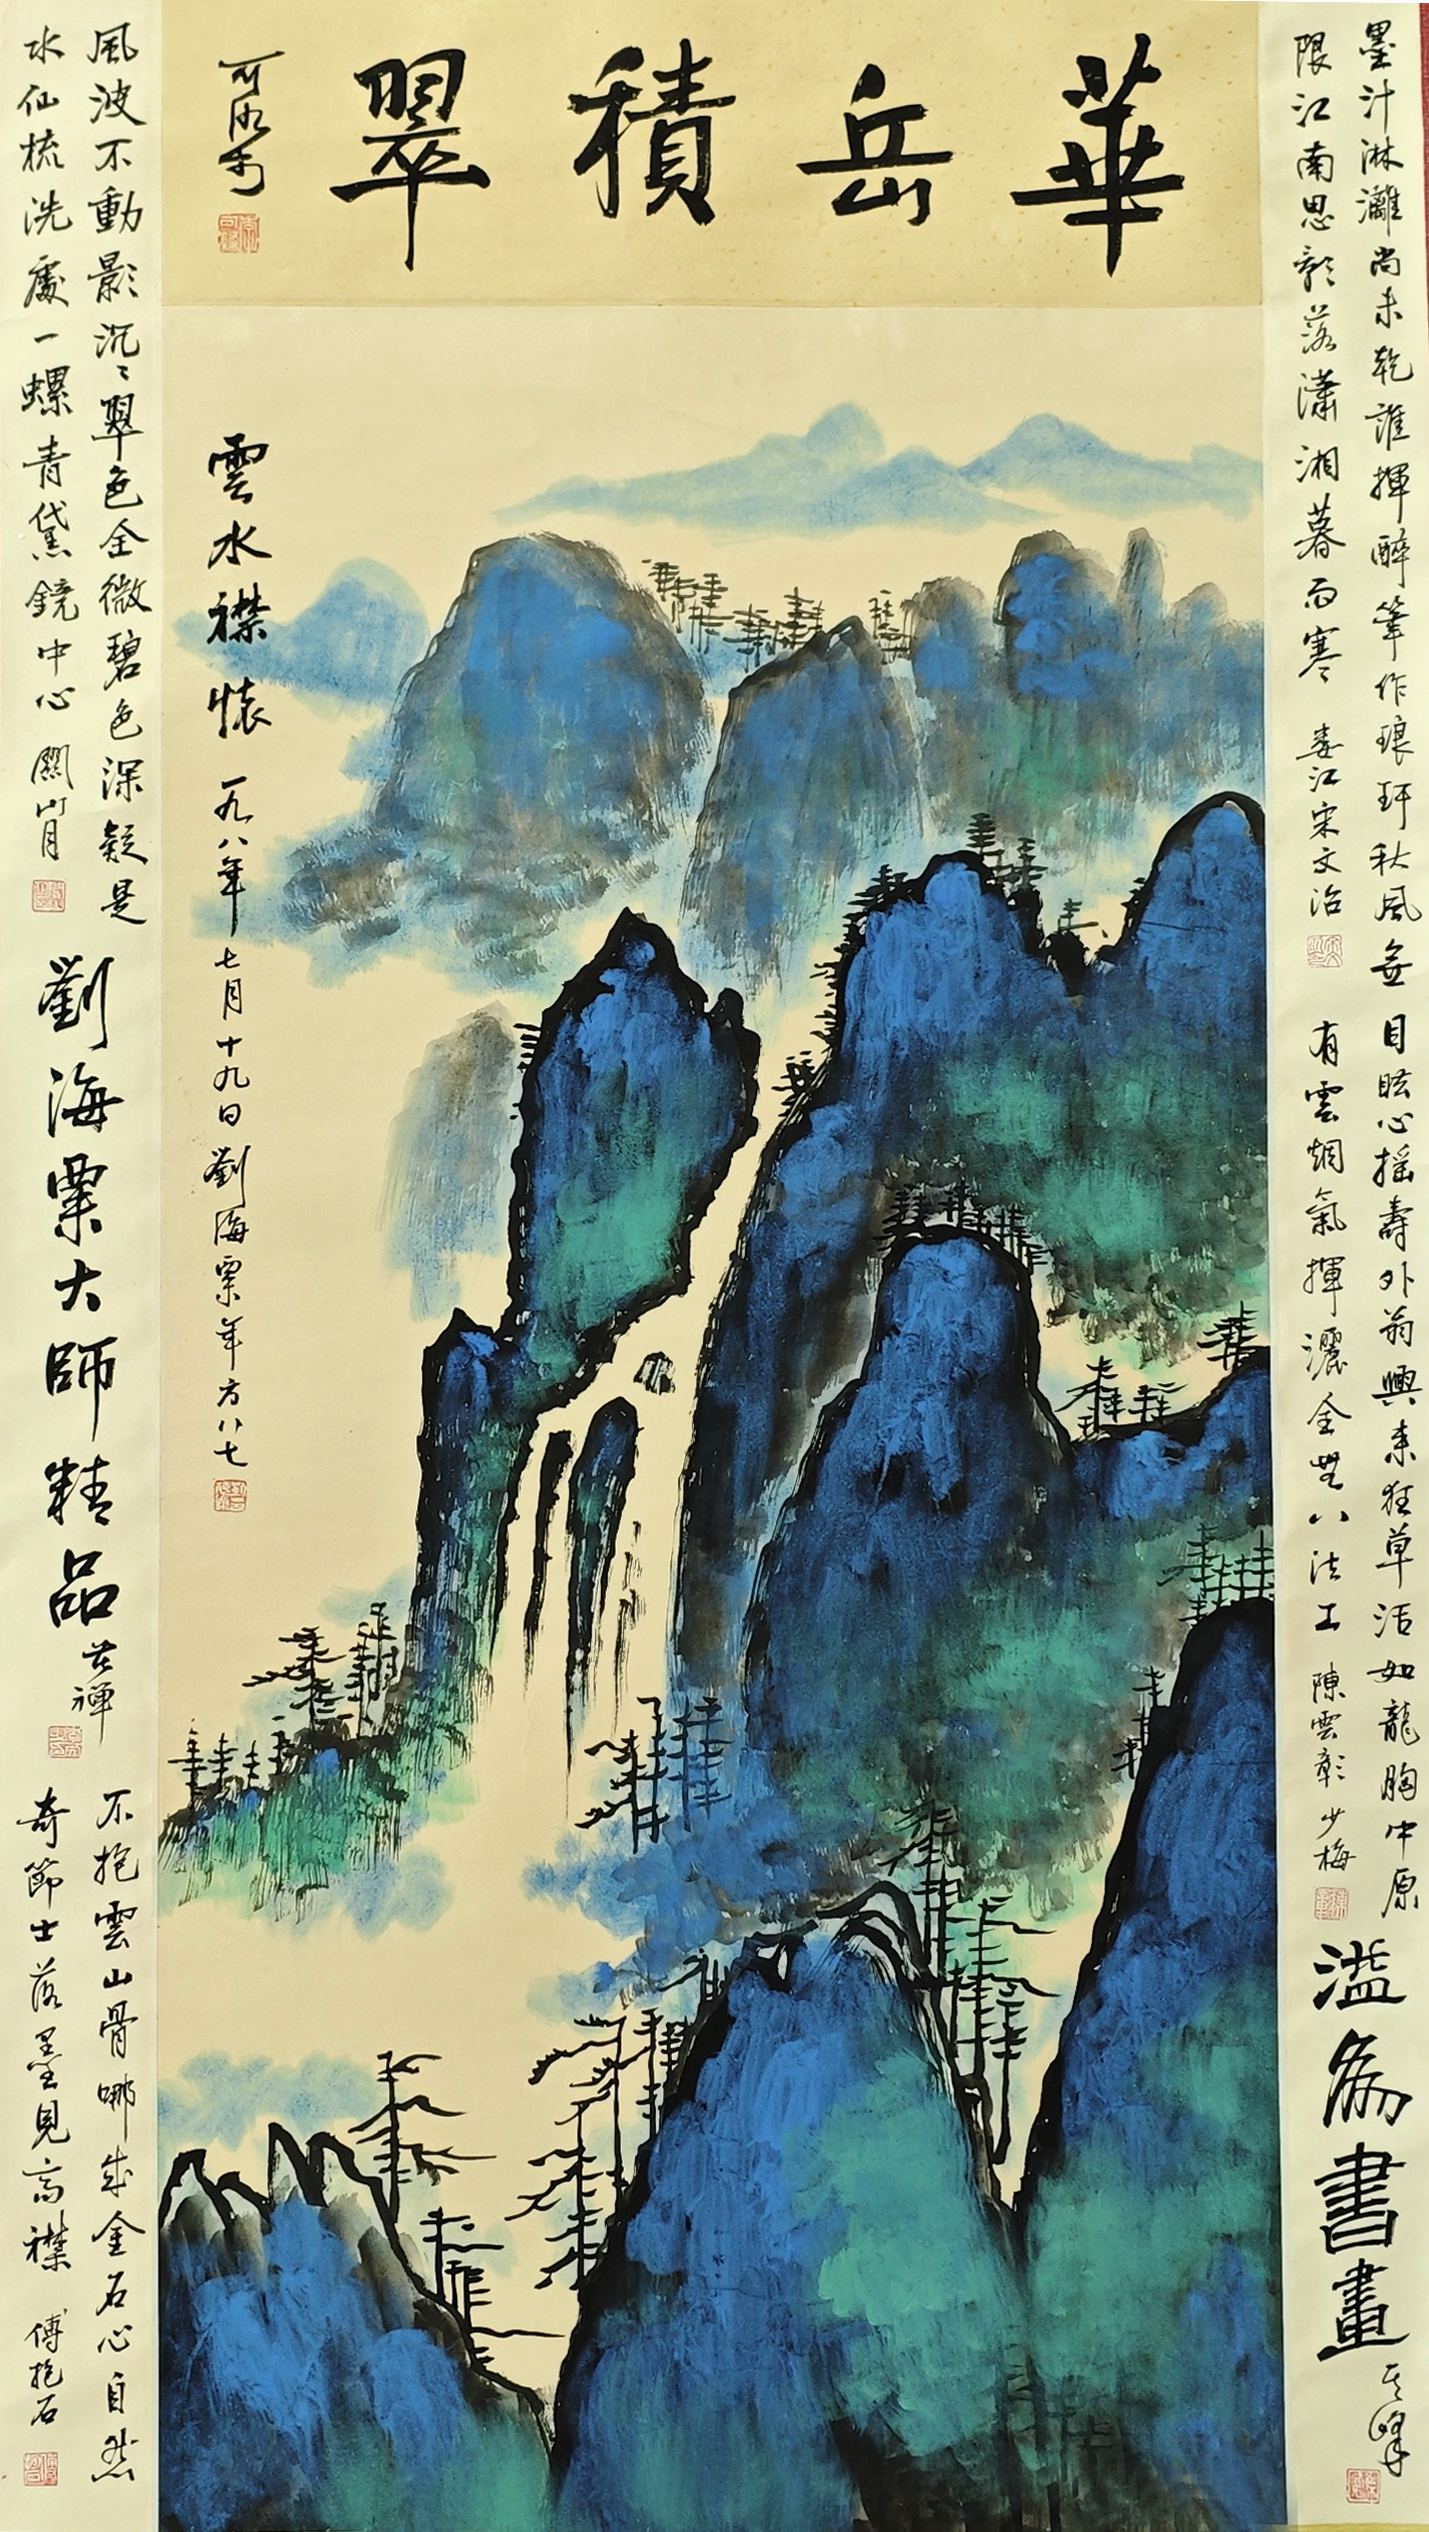 華岳積翠
可染
雲水襟懷
一九八年七月十九日劉海粟年方八七
墨汁淋灕尚未乾誰揮醉筆作琅玕秋風無
限江南思影落瀟湘暮雨寒 婁江宋文治
目眩心搖壽外翁興来狂草活如龍胸中原
有雲烟氣揮灑全無八法工 陳雲彰少梅
溢為書畫
其峰
風波不動影沉沉翠色全微碧色深疑是
水仙梳洗處一螺青黛鏡中心 關山月
劉海粟大師精品
苦禪
不抱雲山骨哪成金石心自然
奇節士落墨見高襟 傅抱石